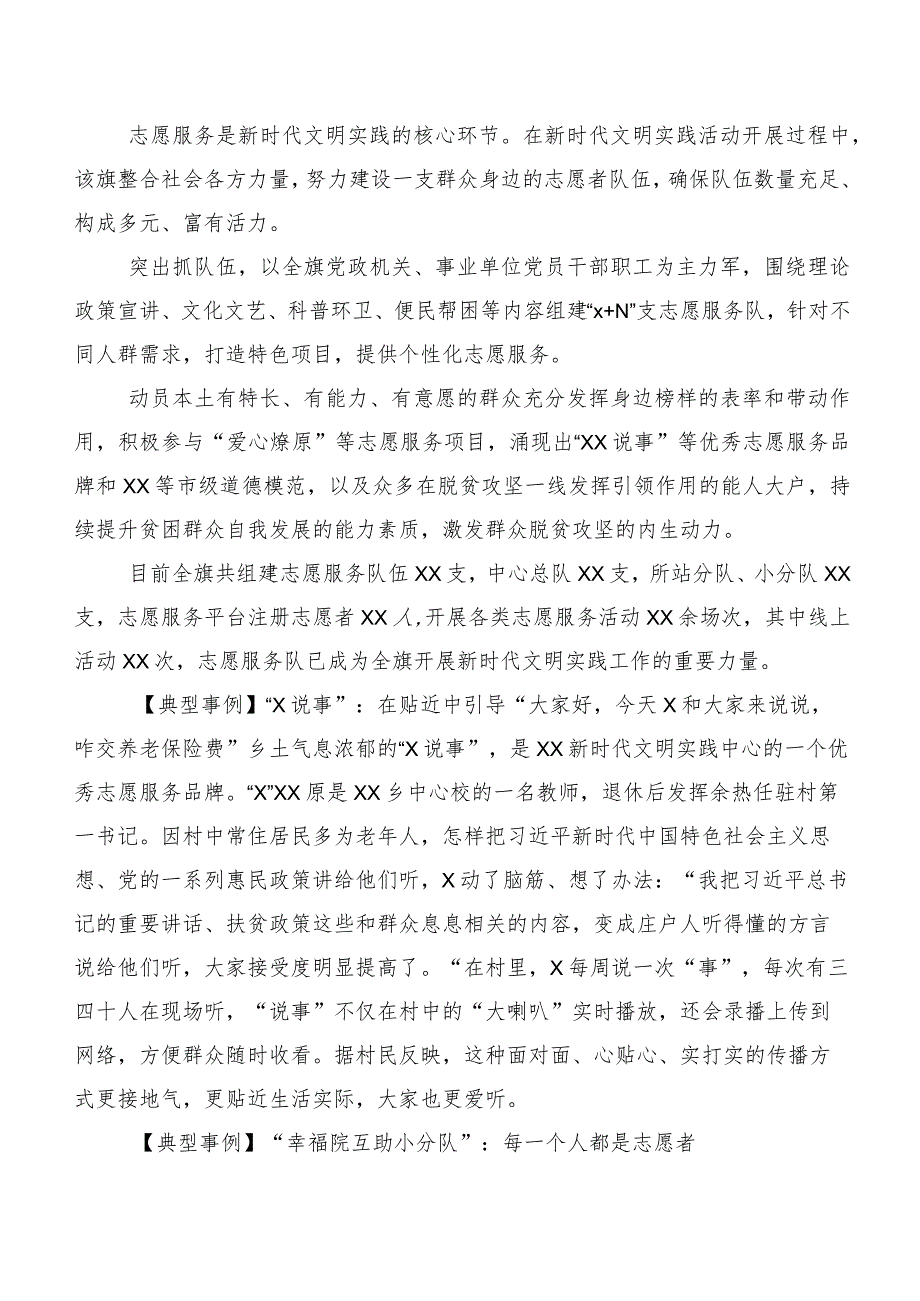 志愿服务是新时代文明实践的核心环节。在新时代文明实践活动开展过程中，
该旗整合社会各方力量，努力建设一支群众身边的志愿者队伍，确保队伍数量充足、
构成多元、富有活力。
突出抓队伍，以全旗党政机关、事业单位党员干部职工为主力军，围绕理论
政策宣讲、文化文艺、科普环卫、便民帮困等内容组建“x+N”支志愿服务队，针对不
同人群需求，打造特色项目，提供个性化志愿服务。
动员本土有特长、有能力、有意愿的群众充分发挥身边榜样的表率和带动作
用，积极参与“爱心燎原”等志愿服务项目，涌现出“XX 说事”等优秀志愿服务品
牌和 XX 等市级道德模范，以及众多在脱贫攻坚一线发挥引领作用的能人大户，持
续提升贫困群众自我发展的能力素质，激发群众脱贫攻坚的内生动力。
目前全旗共组建志愿服务队伍 XX 支，中心总队 XX 支，所站分队、小分队 XX
支，志愿服务平台注册志愿者 XX 人,开展各类志愿服务活动 XX 余场次，其中线上
活动 XX 次，志愿服务队已成为全旗开展新时代文明实践工作的重要力量。
【典型事例】“X 说事”：在贴近中引导“大家好，今天 X 和大家来说说，
咋交养老保险费”乡土气息浓郁的“X 说事”，是 XX 新时代文明实践中心的一个优
秀志愿服务品牌。“X”XX 原是 XX 乡中心校的一名教师，退休后发挥余热任驻村第
一书记。因村中常住居民多为老年人，怎样把习近平新时代中国特色社会主义思
想、党的一系列惠民政策讲给他们听，X 动了脑筋、想了办法：“我把习近平总书
记的重要讲话、扶贫政策这些和群众息息相关的内容，变成庄户人听得懂的方言
说给他们听，大家接受度明显提高了。“在村里，X 每周说一次“事”，每次有三
四十人在现场听，“说事”不仅在村中的“大喇叭”实时播放，还会录播上传到
网络，方便群众随时收看。据村民反映，这种面对面、心贴心、实打实的传播方
式更接地气，更贴近生活实际，大家也更爱听。
【典型事例】“幸福院互助小分队”：每一个人都是志愿者